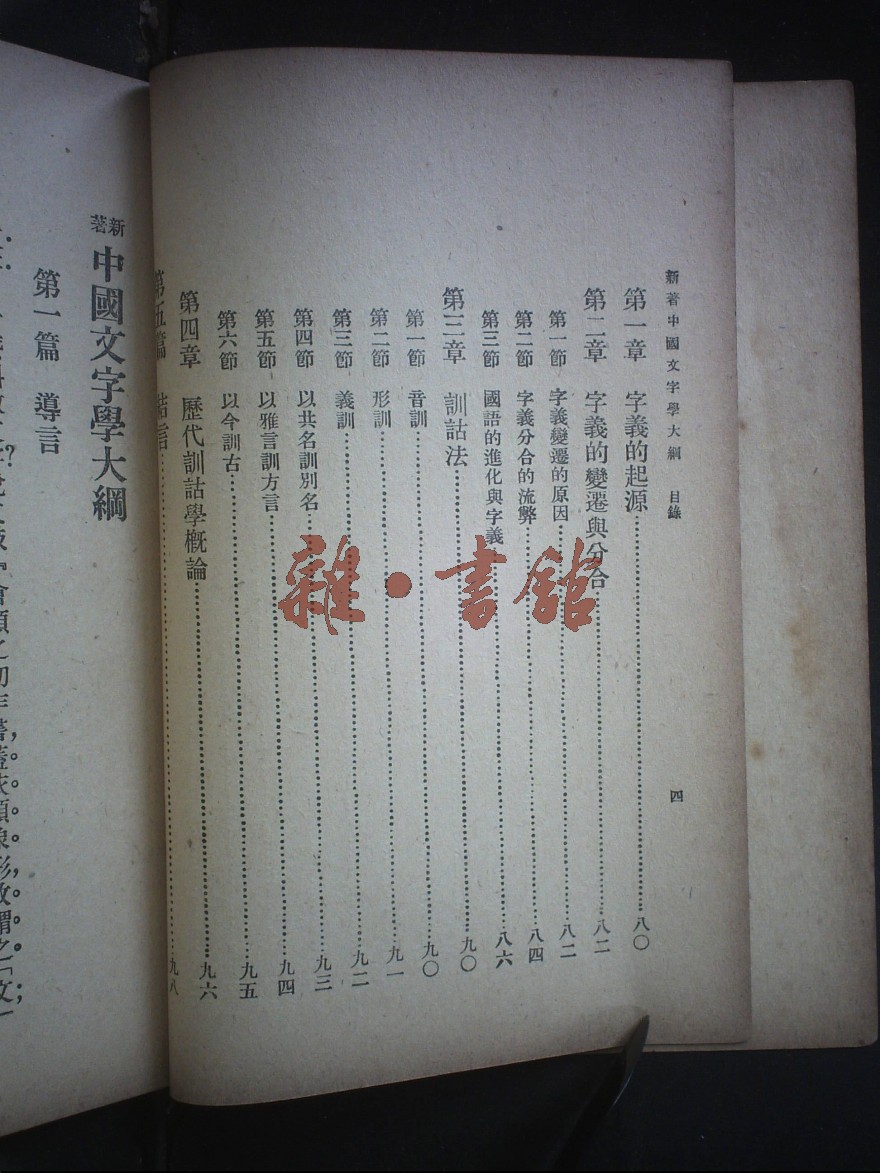 新著中國文字學大綱 目錄
四
第一章 字義的起源……八〇
第二章 字義的變遷與分合……八二
第一節 字義變遷的原因……八二
第二節 字義分合的流弊……八四
第三節 國語的進化與字義……八六
第三章 訓詁法……九〇
第一節 音訓……九〇
第二節 形訓……九一
第三節 義訓……九二
第四節 以共名訓別名……九三
第五節 以雅言訓方言……九四
第六節 以今訓古……九五
第四章 歷代訓詁學概論……九六
第五篇 結言……九八
雜·書館
新著中國文字學大綱
第一篇 導言
倉頡之初作書,蓋依類象形,故謂之「文」;